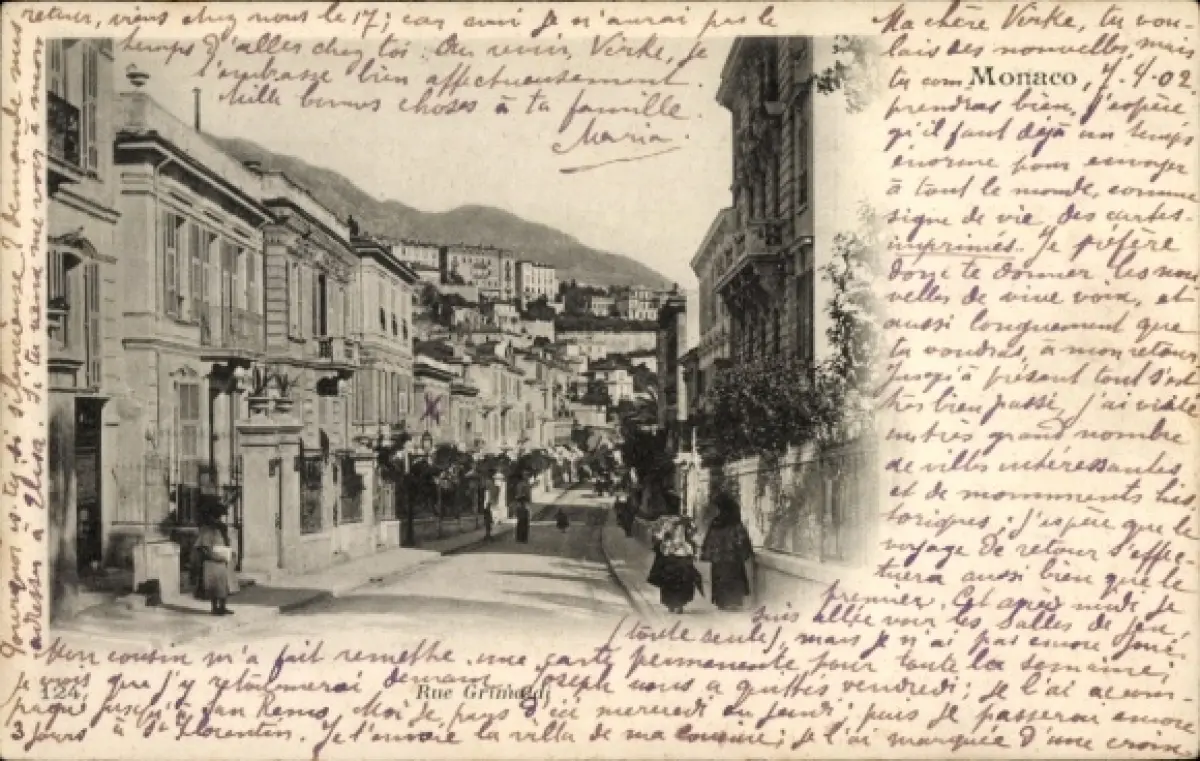 Ma chère Virke, tu vou-
lais des nouvelles, mais
tu com Monaco, 7.4.02
prendras bien, j'espère
qu'il faut déjà un temps
énorme pour envoyer
à tout le monde, comme
signe de vie, des cartes-
imprimés. Je préfère
donc te donner les nou
velles de vive voix, et
aussi longuement que
tu voudras, à mon retour
Jusqu'à présent tout s'est
très bien passé, j'ai visité
un très grand nombre
de villes intéressantes
et de monuments his
toriques; j'espère que le
voyage de retour s'effec
tuera aussi bien que le
premier. Cet après midi, je
suis allée voir les Salles de jeu,
(toute seule), mais je n'ai pas encore joué.
Mon cousin m'a fait remettre une carte permanente pour toute la semaine;
je crois que j'y retournerai demain. Joseph nous a quittés vendredi; je l'ai accom-
124, Rue Grimaldi
pagné jusqu'à San Remo. Moi je pars d'ici mercredi ou jeudi; puis je passerai encore
3 jours à St Florentin. Je t'envoie la villa de ma cousine; je l'ai marquée d'une croix.
Pourquoi es tu si silencieuse? demande mon
adresse à Elisa. Si tu veux me voir, à mon
retour, viens chez nous le 17; car moi je n'aurai pas le
temps d'aller chez toi. Au revoir, Virke, je
t'embrasse bien affectueusement
Mille bonnes choses à ta famille
Maria.